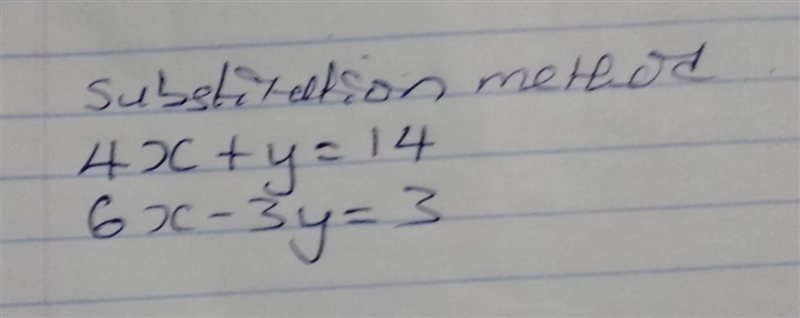 substitution method
4x + y = 14
6x - 3y = 3